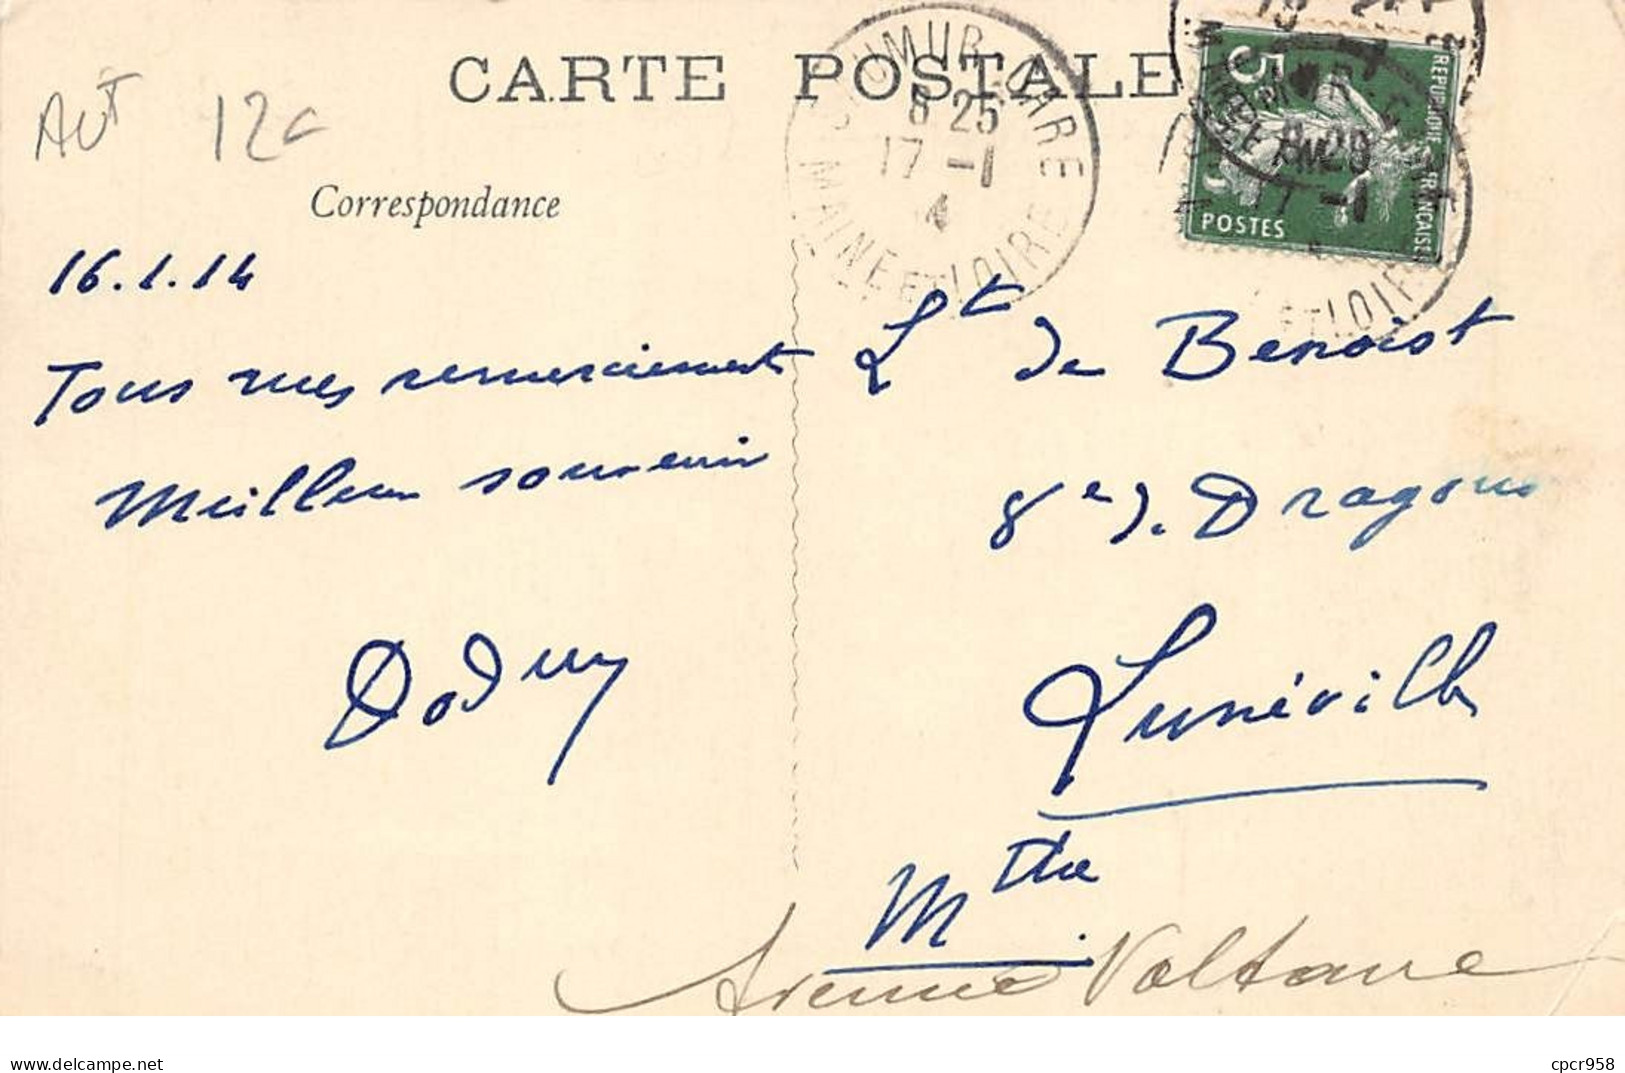 CARTE POSTALE
AUT 12c
SAUMUR-GARE
8 25
17 -1
14
MAINE ET LOIRE
5
REPUBLIQUE FRANÇAISE
POSTES
Correspondance
16.1.14
Tous mes remerciements
Meilleur souvenir
Lt de Benoist
8e d. Dragons
Lunéville
Mthe
Avenue Voltaire
www.delcampe.net
cpcr958